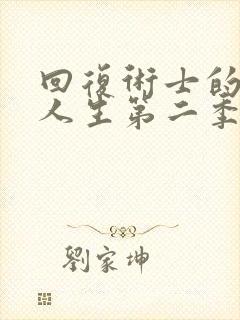 回復術士的
人生第二季
劉家坤